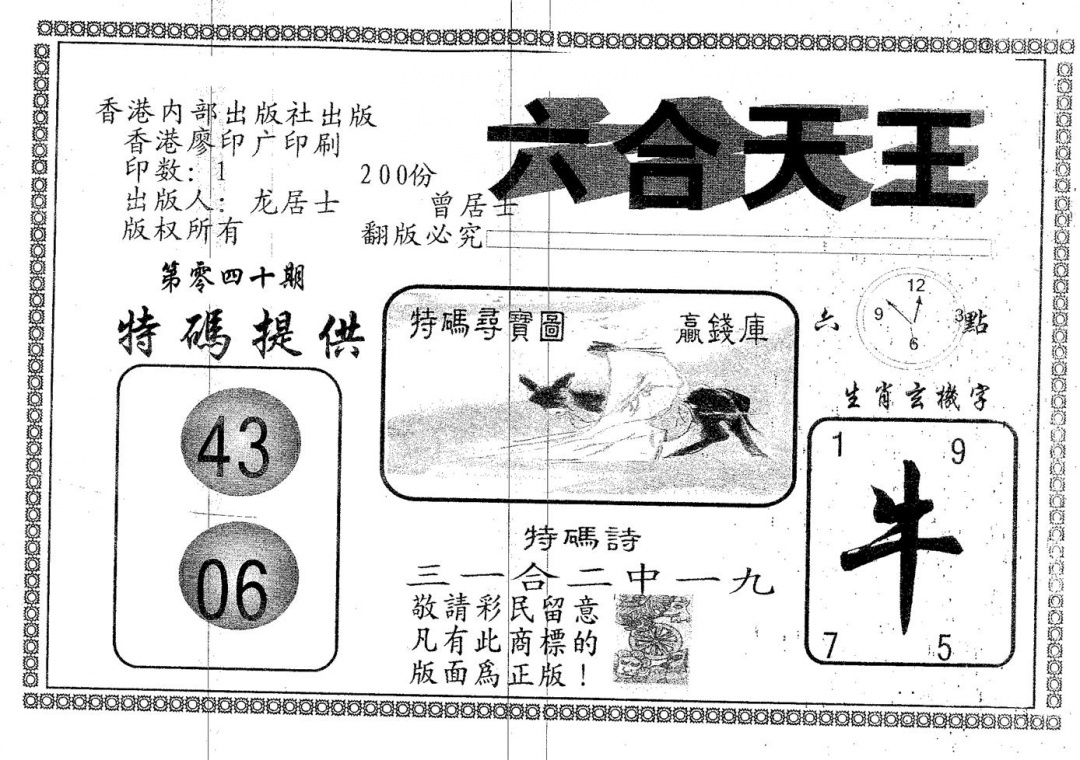 香港内部出版社出版
香港廖印广印刷
印数: 1 200份
出版人: 龙居士 曾居士
版权所有 翻版必究
六合天王
第零四十期
特碼提供
43
06
特碼尋寶圖 贏錢庫
六 點
12
9 3
6
生肖玄機字
1 9
牛
7 5
特碼詩
三一合二中一九
敬請彩民留意
凡有此商標的
版面爲正版!